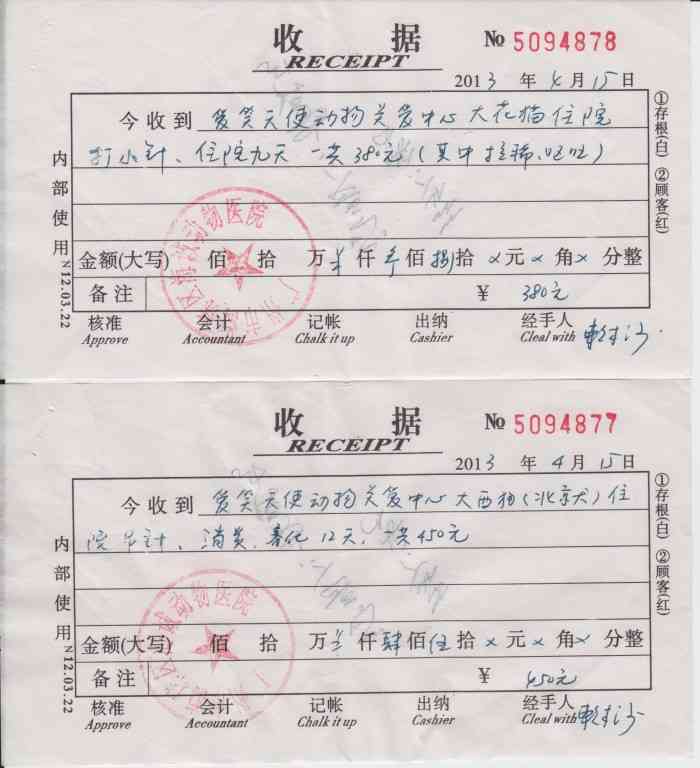 收 据 № 5094878
RECEIPT
2013 年 4 月 15 日
今收到 爱笑天使动物关爱中心 大花猫住院
打小针、住院九天 一共380元(其中拉稀、呕吐)
金额(大写) 佰 拾 万 仟 叁佰 捌拾 ×元 ×角 × 分整
备注 ¥ 380元
核准 会计 记帐 出纳 经手人
Approve Accountant Chalk it up Cashier Cleal with
内部使用 N12.03.22
①存根(白) ②顾客(红)
动物医院
收 据 № 5094877
RECEIPT
2013 年 4 月 15 日
今收到 爱笑天使动物关爱中心 大西狗(北京犬)住
院 针、消炎、 12天, 共450元
金额(大写) 佰 拾 万 仟 肆佰 伍拾 ×元 ×角 × 分整
备注 ¥ 450元
核准 会计 记帐 出纳 经手人
Approve Accountant Chalk it up Cashier Cleal with
内部使用 N12.03.22
①存根(白) ②顾客(红)
动物医院